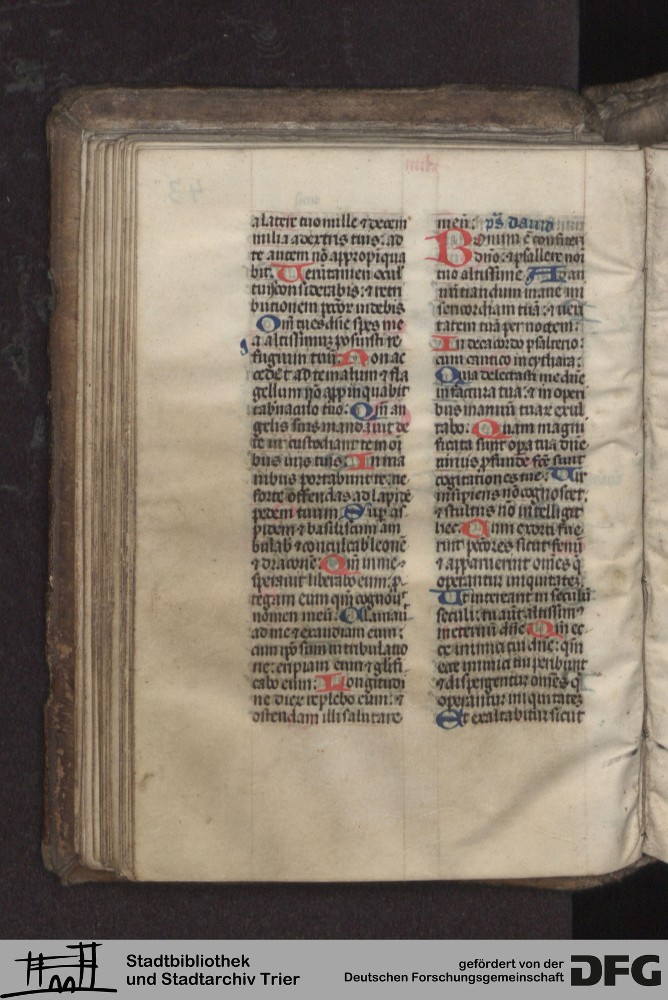 a latere tuo mille ⁊ decem
milia a dextris tuis: ad
te autem nō appropinqua
bit. Uerūtamen ocul
tuis considerabis: ⁊ retri
butionem pctor̄ videbis
Qm̄ tu es dn̄e spes me
a altissimuʒ posuisti re
fugium tuū. Non ac
cedet ad te malum ⁊ fla
gellum nō appinquabit
tabnaculo tuo. Qm̄ an
gelis suis mandauit de
te ut custodiant te in oi
bus uiis tuis. In ma
nibus portabunt te: ne
forte offendas ad lapidē
pedem tuum. Sup aſ
pidem ⁊ basiliscum am
bulab ⁊ conculcab leonē
⁊ draconē. Qm̄ in me
sperauit liberabo eum: ꝓ
tegam eum qm̄ cognouit
nomen meū. Clamauit
ad me ⁊ exaudiam eum:
cum ip̄o sum in tribulatio
ne: eripiam eum ⁊ glifi
cabo eum. Longitudi
ne dierꝝ replebo eum: ⁊
ostendam illi salutare
meū. pˢ dauid
Bonum ē confiteri
dn̄o: ⁊ psallere noī
tuo altissime. Ad an
nūtiandum mane mi
sericordiam tuā: ⁊ ueri
tatem tuā per noctem.
In decacordo psalterio:
cum cantico in cythara.
Quia delectasti me dn̄e
in factura tua: ⁊ in operi
bus manuū tuarꝝ exul
tabo. Quam magni
ficata sunt opa tua dn̄e
nimis ꝓfunde fce sunt
cogitationes tue. Uir
insipiens nō cognoscet:
⁊ stultus nō intelliget
hec. Cum exorti fue
rint pctores sicut fenū
⁊ apparuerint om̄es q̇
operantur iniquitateʒ
Ut intereant in seculū
seculi: tu aut altissimꝰ
in eternū dn̄e. Qm̄ ec
ce inimici tui dn̄e: qm̄
ecce inimici tui peribunt
⁊ dispergentur om̄es q̇
operantur iniquitateʒ
Et exaltabitur sicut
Stadtbibliothek
und Stadtarchiv Trier
gefördert von der
Deutschen Forschungsgemeinschaft
DFG